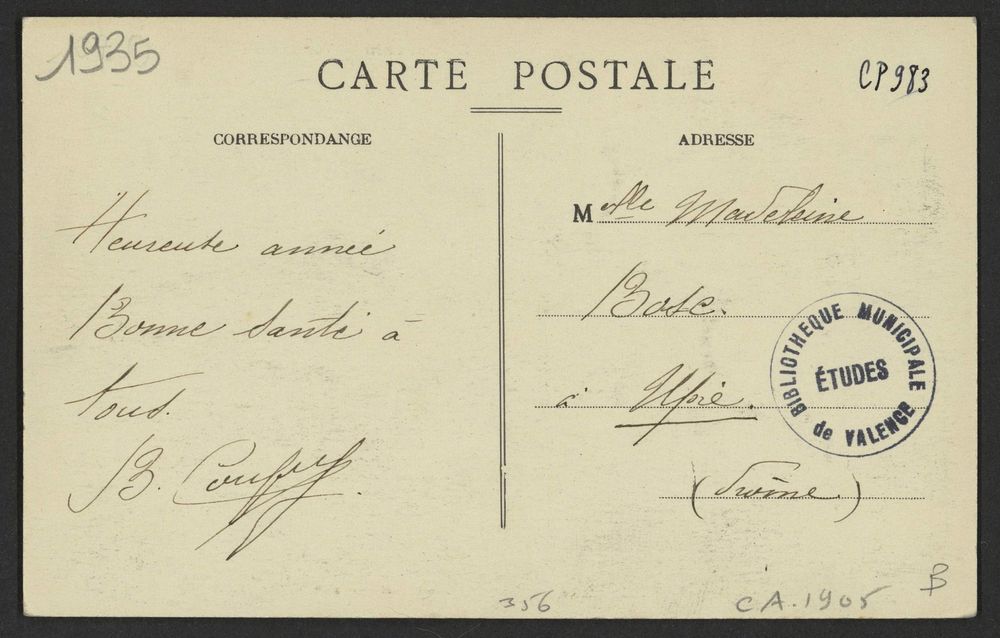 1935
CARTE POSTALE
CP983
CORRESPONDANCE
Heureuse année
Bonne Santé à
tous.
B.
ADRESSE
Melle Madeleine
Bosc.
à Upie.
(Drôme.)
BIBLIOTHEQUE MUNICIPALE
ÉTUDES
de VALENCE
356
CA.1905
B